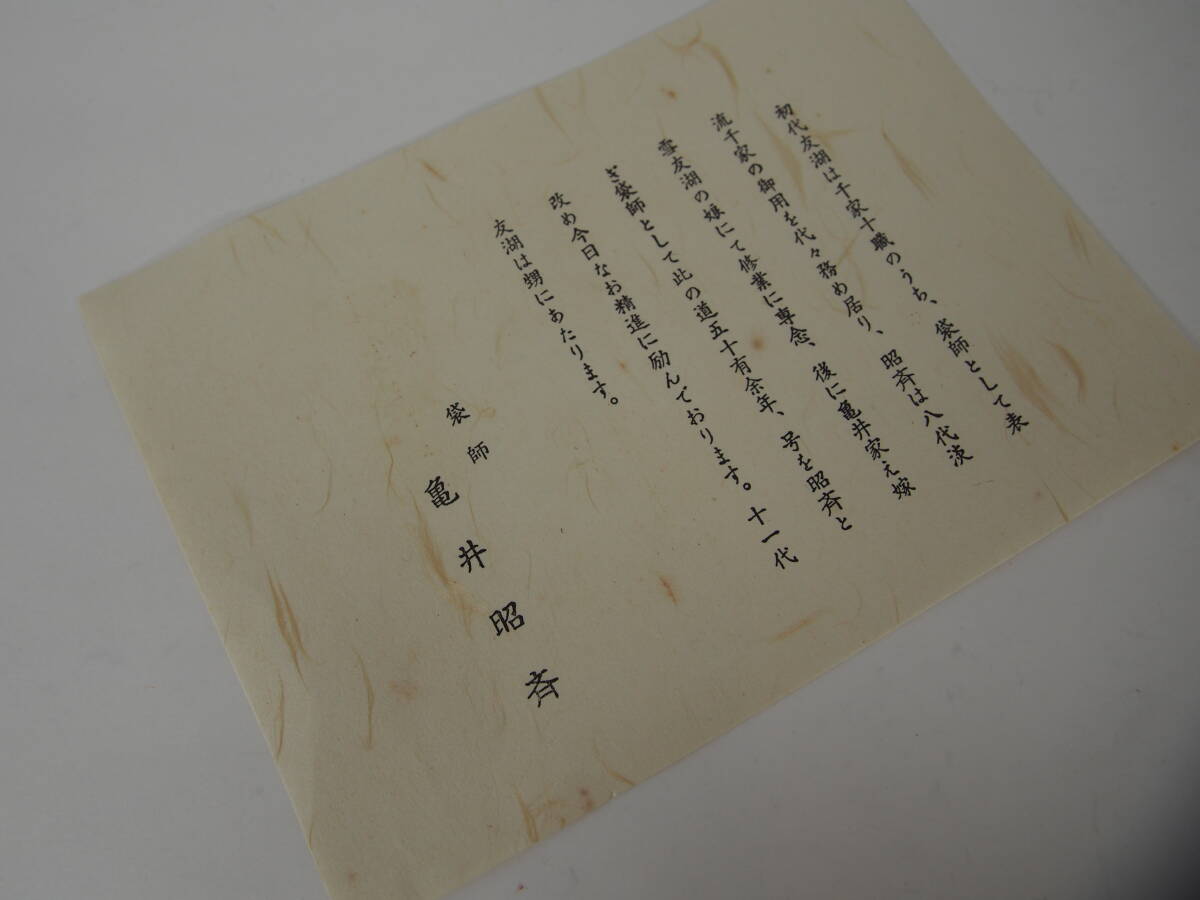 初代友湖は千家十職のうち、袋師として表
流千家の御用を代々務め居り、昭斉は八代淡
雪友湖の娘にて修業に専念、後に亀井家え嫁
ぎ袋師として此の道五十有余年、号を昭斉と
改め今日なお精進に励んでおります。十一代
友湖は甥にあたります。
袋師 亀井昭斉